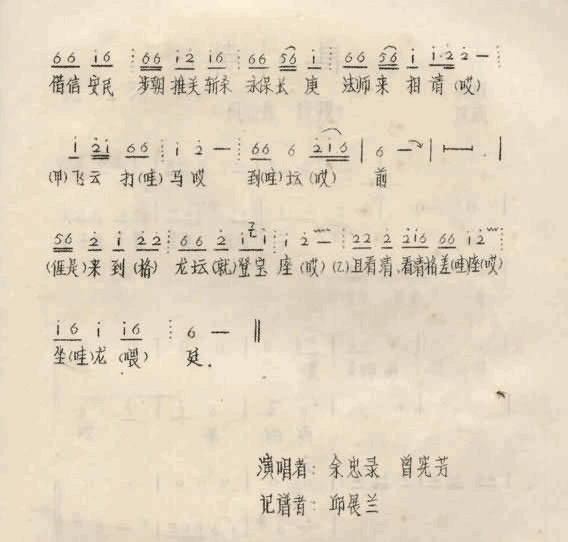 66 i6 ⋮ 66 i2 i6 ⋮ 66 56 i ⋮ 66 56 i i·2 2 — ⋮
借信安民 步朝推关斩杀 永保长庚 法师来相请(哎)
i 2i 66 ⋮ i 2 — ⋮ 66 6 2i6 | 6 — | |
(甲)飞云打(哇)马哎 到(哇)坛(哎) 前
56 2 i 22 ⋮ 66 2 i i ⋮ i 2 — ⋮ 22 2 2i6 66 i2 ⋮
(催是)来到(格) 龙坛(就)登宝座(哎) (乙)且看清,看清格差(哇)座(哎)
i6 i i6 ⋮ 6 — ‖
坐(哇)龙(喂) 廷.
演唱者: 余忠录 曾宪芳
记谱者: 邱展兰